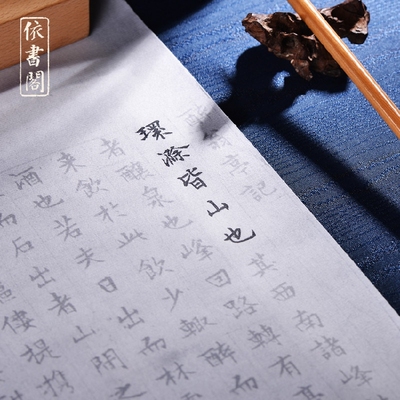 依書閣
醉翁亭記
環滁皆山也其西南諸峰
者釀泉也峰回路轉有亭
來飲於此飲少輒醉而
酒也若夫日出而林
而石出者山間之
傴僂提攜